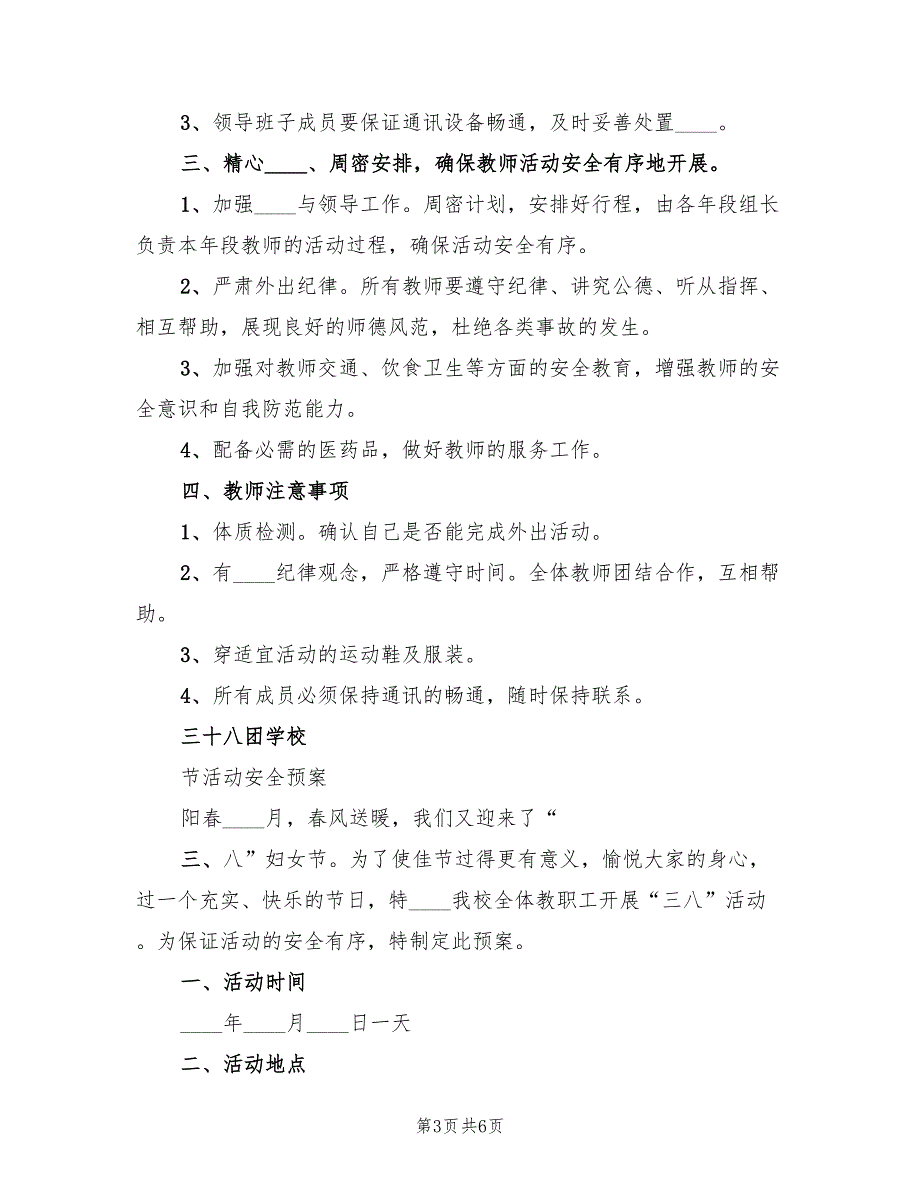 3、领导班子成员要保证通讯设备畅通，及时妥善处置____。
三、精心____、周密安排，确保教师活动安全有序地开展。
1、加强____与领导工作。周密计划，安排好行程，由各年段组长
负责本年段教师的活动过程，确保活动安全有序。
2、严肃外出纪律。所有教师要遵守纪律、讲究公德、听从指挥、
相互帮助，展现良好的师德风范，杜绝各类事故的发生。
3、加强对教师交通、饮食卫生等方面的安全教育，增强教师的安
全意识和自我防范能力。
4、配备必需的医药品，做好教师的服务工作。
四、教师注意事项
1、体质检测。确认自己是否能完成外出活动。
2、有____纪律观念，严格遵守时间。全体教师团结合作，互相帮
助。
3、穿适宜活动的运动鞋及服装。
4、所有成员必须保持通讯的畅通，随时保持联系。
三十八团学校
节活动安全预案
阳春____月，春风送暖，我们又迎来了“
三、八”妇女节。为了使佳节过得更有意义，愉悦大家的身心，
过一个充实、快乐的节日，特____我校全体教职工开展“三八”活动
。为保证活动的安全有序，特制定此预案。
一、活动时间
____年____月____日一天
二、活动地点
第3页共6页